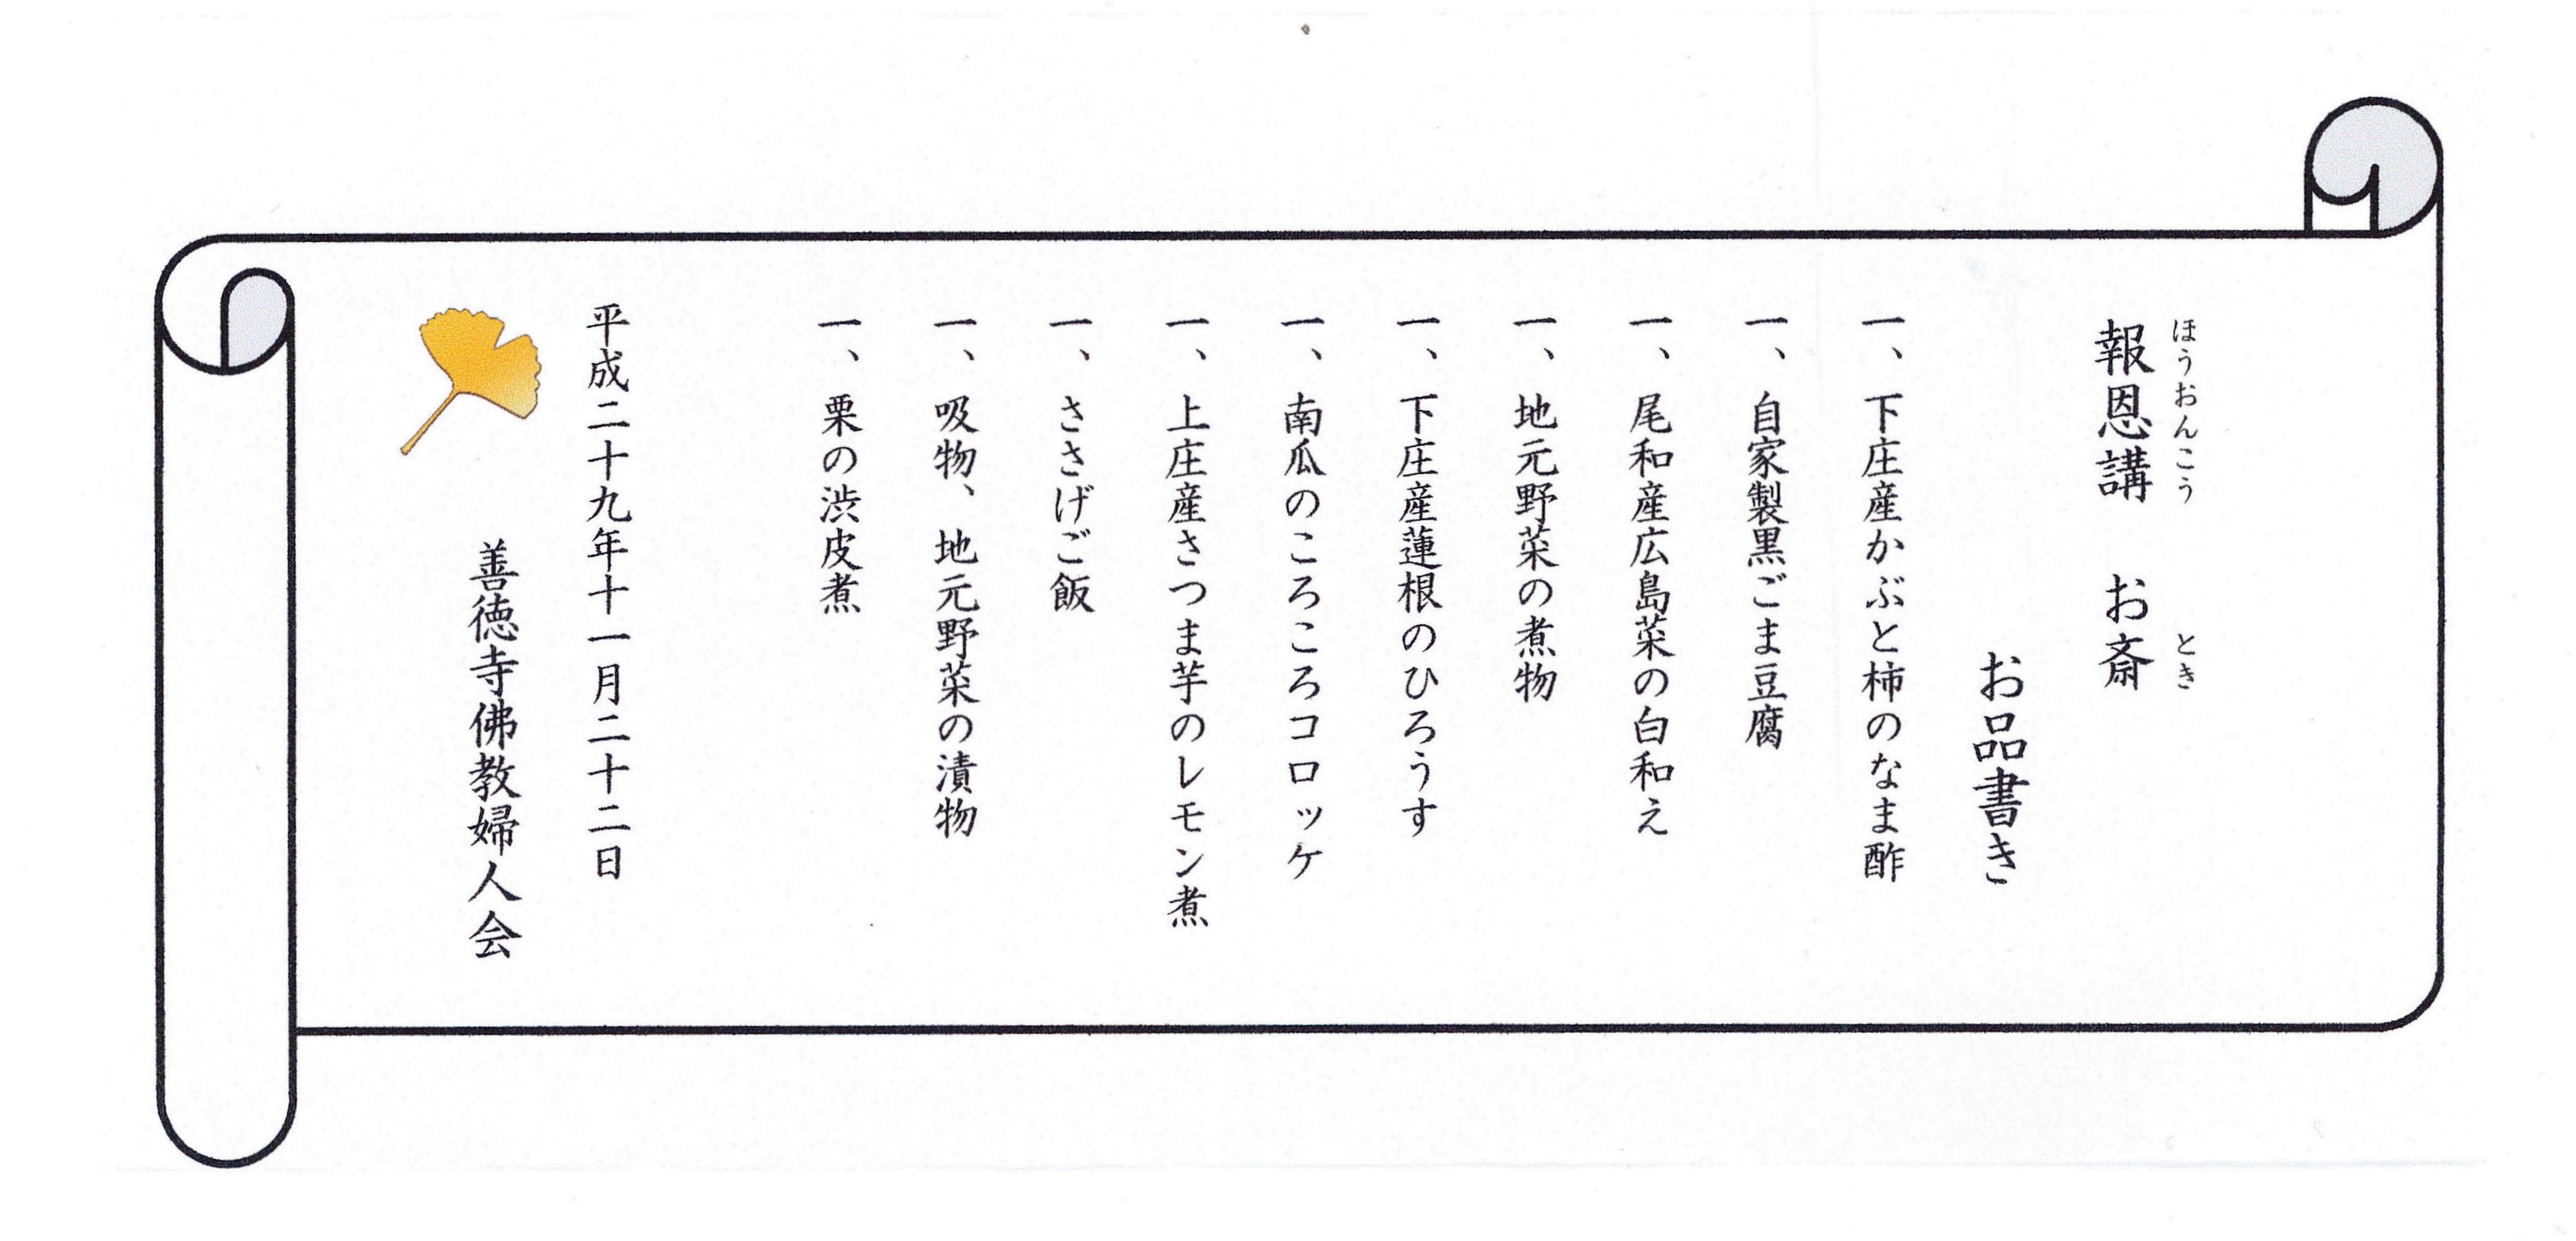 ほうおんこう　とき
報恩講　お斎
お品書き
一、下庄産かぶと柿のなま酢
一、自家製黒ごま豆腐
一、尾和産広島菜の白和え
一、地元野菜の煮物
一、下庄産蓮根のひろうす
一、南瓜のころころコロッケ
一、上庄産さつま芋のレモン煮
一、ささげご飯
一、吸物、地元野菜の漬物
一、栗の渋皮煮
平成二十九年十一月二十二日
善徳寺佛教婦人会